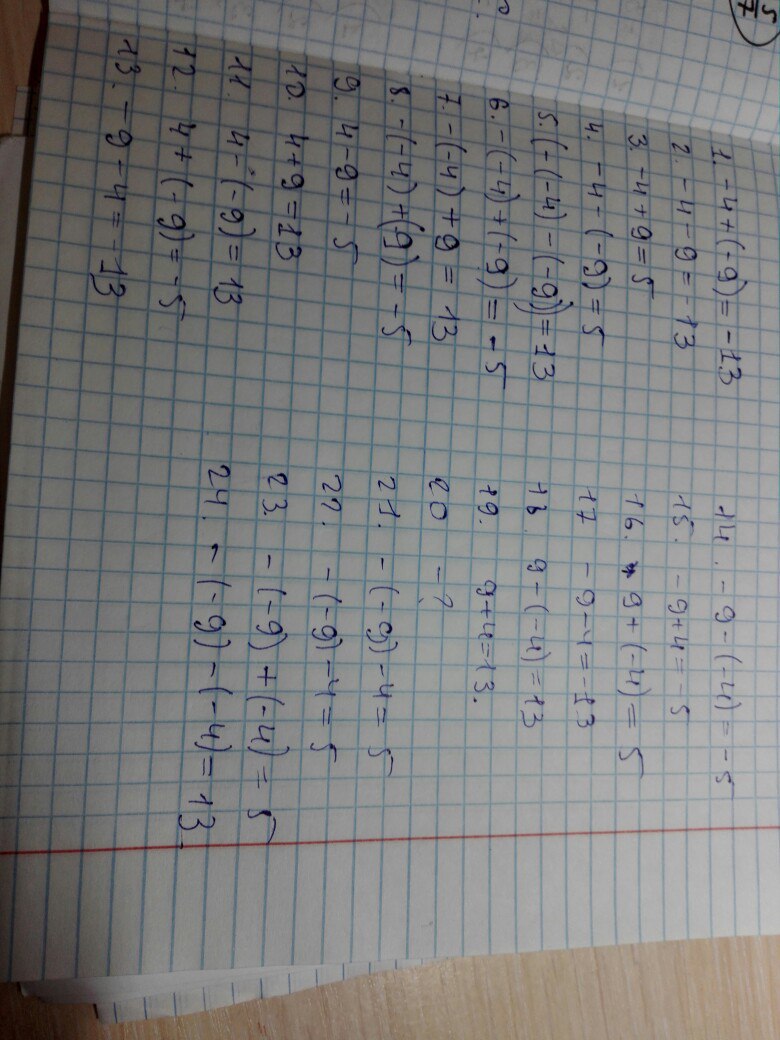 5
7
1. -4+(-9)=-13
2. -4-9=-13
3. -4+9=5
4. -4-(-9)=5
5. (-(-4)-(-9))=13
6. -(-4)+(-9)=-5
7. -(-4)+9=13
8. -(-4)+(9)=-5
9. 4-9=-5
10. 4+9=13
11. 4-(-9)=13
12. 4+(-9)=-5
13. -9-4=-13
14. -9-(-4)=-5
15. -9+4=-5
16. 9+(-4)=5
17 -9-4=-13
18. 9-(-4)=13
19. 9+4=13.
20 -?
21. -(-9)-4=5
22. -(-9)-4=5
23. -(-9)+(-4)=5
24. -(-9)-(-4)=13.